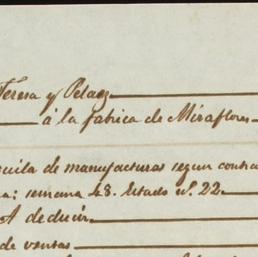 Teresa y Pelaez
á la fabrica de Miraflores
de manufacturas segun
semana 48. Estado nº. 22
A deducir
de ventas